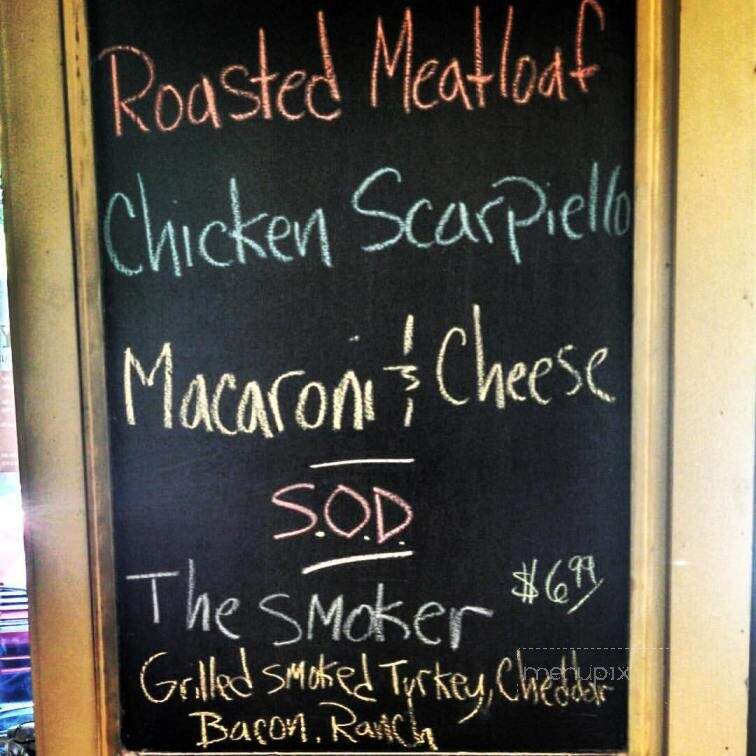 Roasted Meatloaf
Chicken Scarpiello
Macaroni & Cheese
S.O.D.
The Smoker $6.99
Grilled Smoked Turkey, Cheddar
Bacon. Ranch
menupix